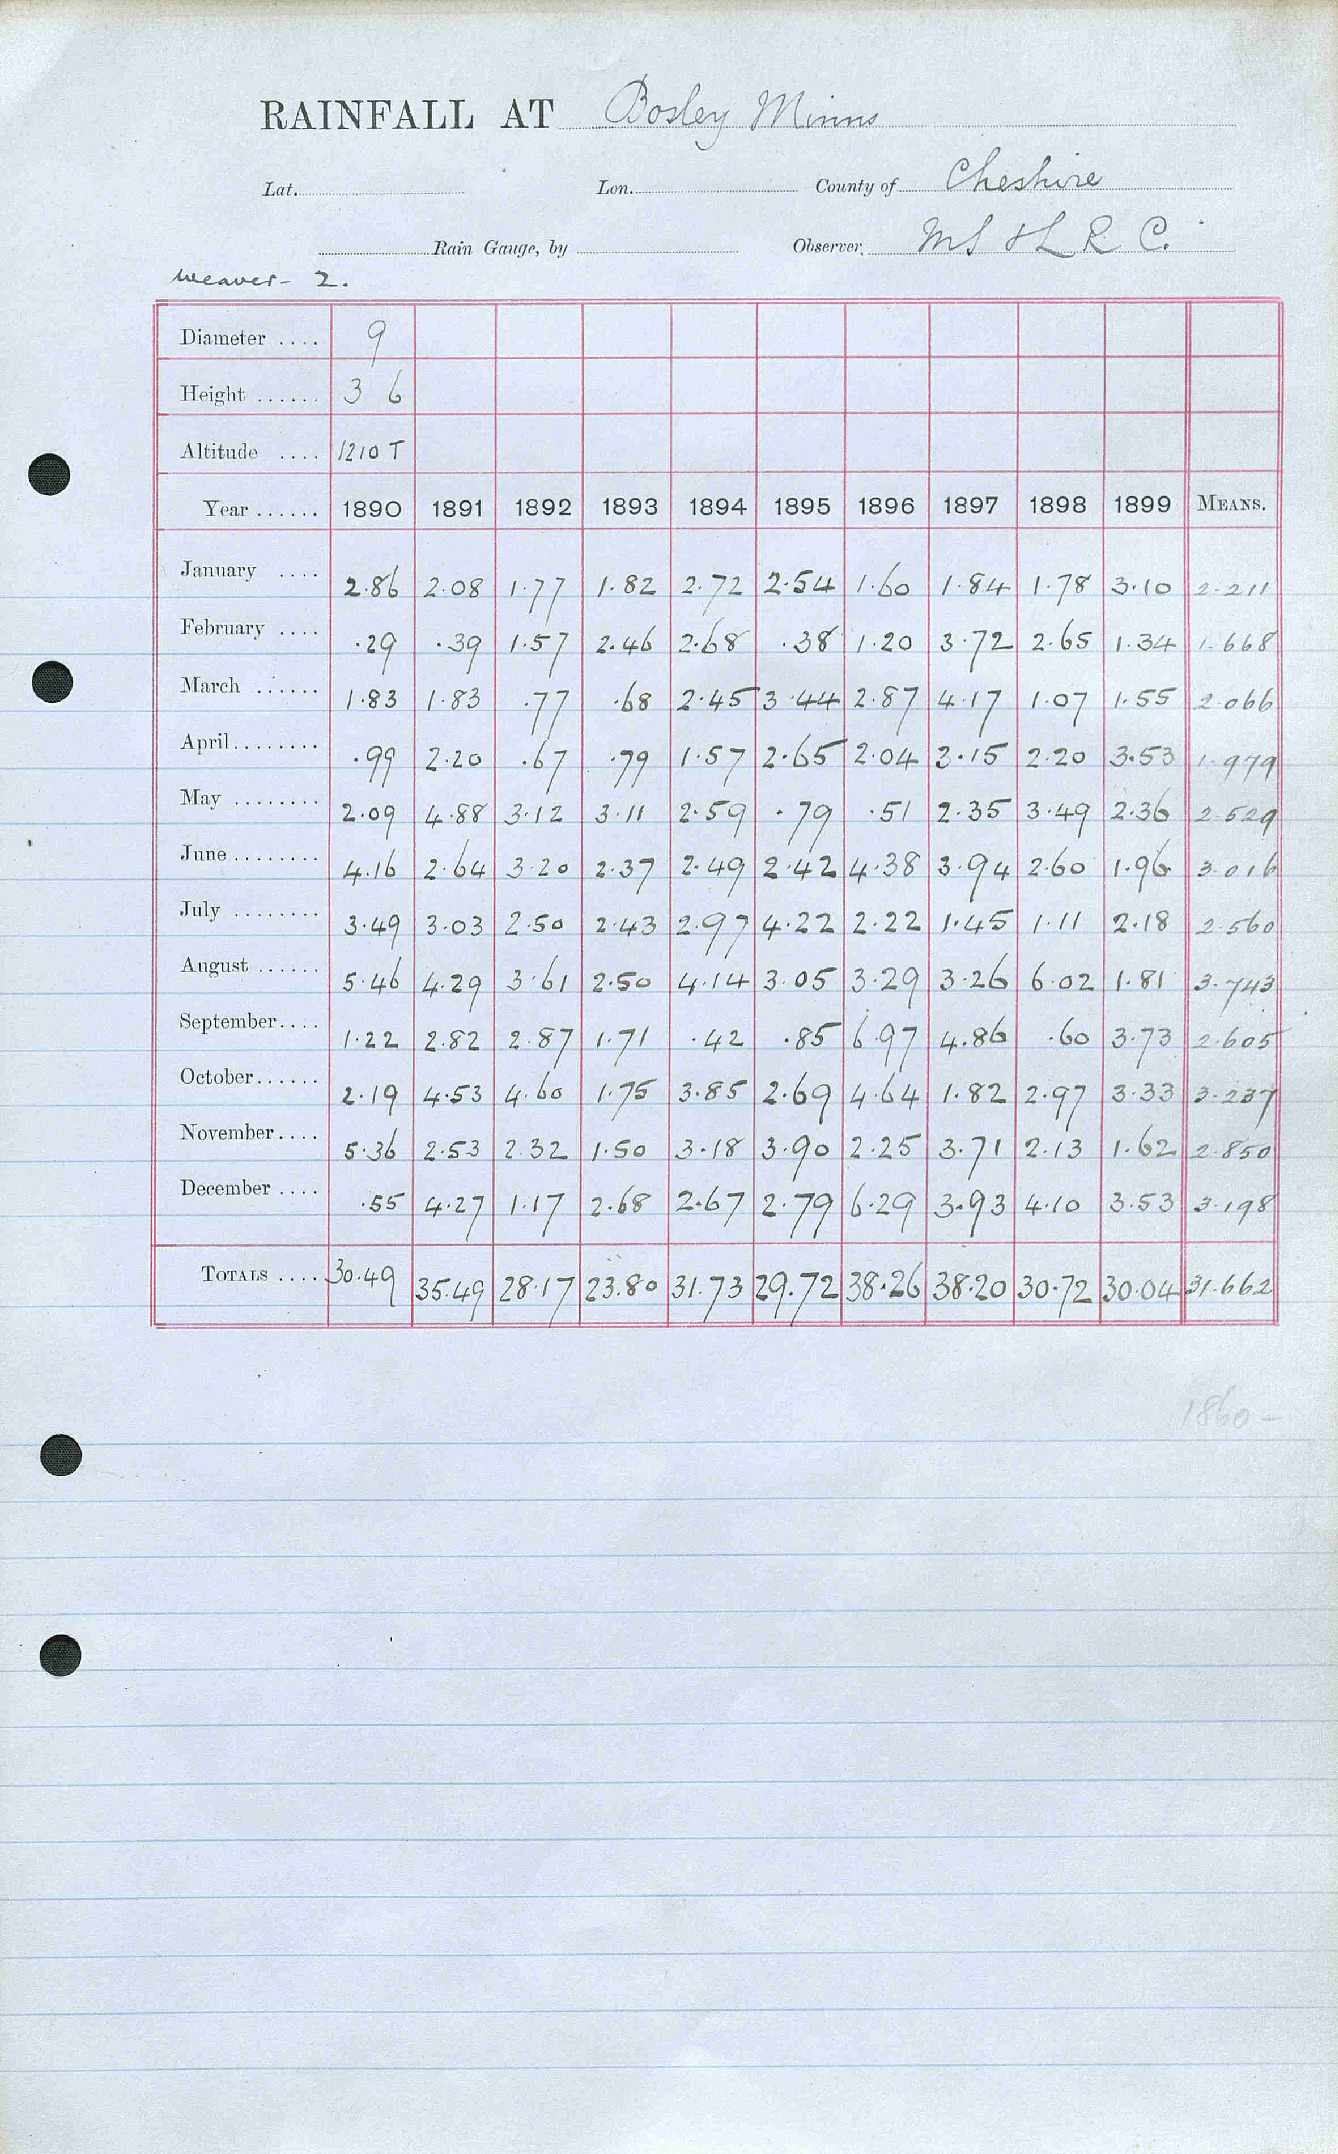 RAINFALL AT Bosley Minns
Lat. Lon. County of Cheshire
Rain Gauge, by Observer, M S & L R C.
Weaver - 2.
Diameter .... 9
Height ...... 3 6
Altitude .... 1210 T
Year ...... 1890 1891 1892 1893 1894 1895 1896 1897 1898 1899 MEANS.
January .... 2.86 2.08 1.77 1.82 2.72 2.54 1.60 1.84 1.78 3.10 2.211
February .... .29 .39 1.57 2.46 2.68 .38 1.20 3.72 2.65 1.34 1.668
March ...... 1.83 1.83 .77 .68 2.45 3.44 2.87 4.17 1.07 1.55 2.066
April ........ .99 2.20 .67 .79 1.57 2.65 2.04 3.15 2.20 3.53 1.979
May ........ 2.09 4.88 3.12 3.11 2.59 .79 .51 2.35 3.49 2.36 2.529
June ........ 4.16 2.64 3.20 2.37 2.49 2.42 4.38 3.94 2.60 1.96 3.016
July ........ 3.49 3.03 2.50 2.43 2.97 4.22 2.22 1.45 1.11 2.18 2.560
August ...... 5.46 4.29 3.61 2.50 4.14 3.05 3.29 3.26 6.02 1.81 3.743
September .... 1.22 2.82 2.87 1.71 .42 .85 6.97 4.86 .60 3.73 2.605
October ...... 2.19 4.53 4.60 1.75 3.85 2.69 4.64 1.82 2.97 3.33 3.237
November .... 5.36 2.53 2.32 1.50 3.18 3.90 2.25 3.71 2.13 1.62 2.850
December .... .55 4.27 1.17 2.68 2.67 2.79 6.29 3.93 4.10 3.53 3.198
TOTALS .... 30.49 35.49 28.17 23.80 31.73 29.72 38.26 38.20 30.72 30.04 31.662
1860 -